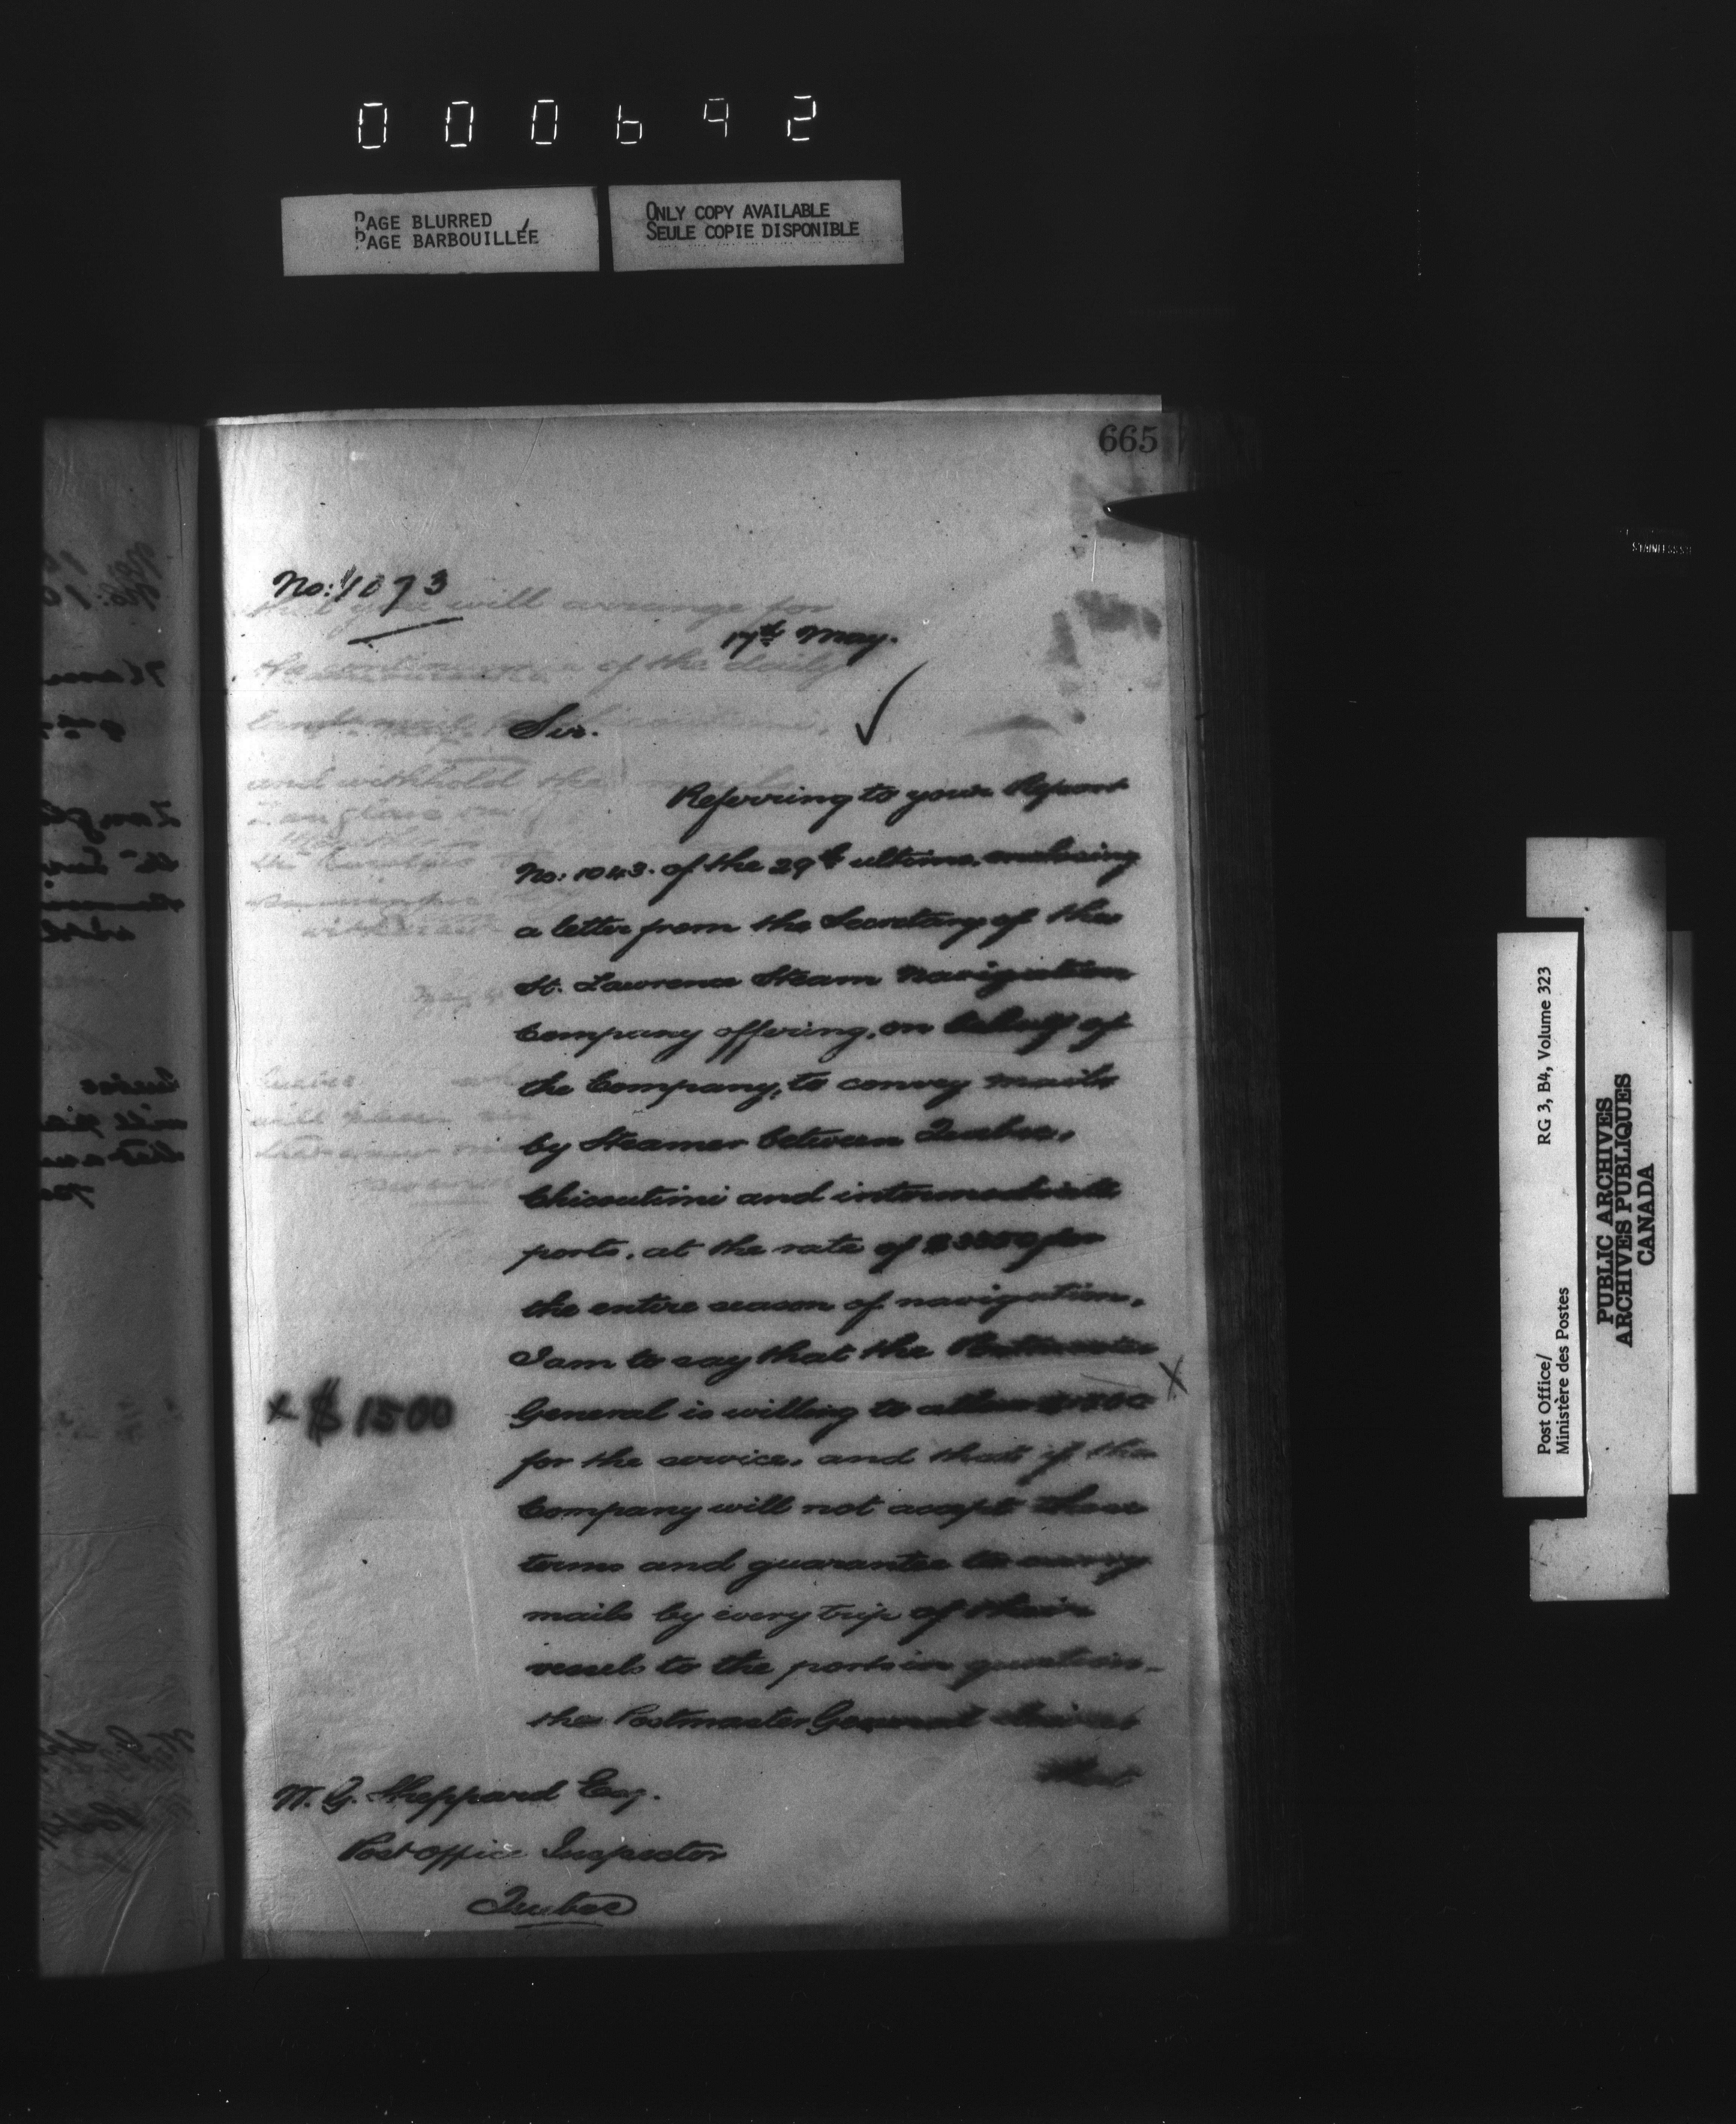 000692
PAGE BLURRED
PAGE BARBOUILLÉE
ONLY COPY AVAILABLE
SEULE COPIE DISPONIBLE
665
No: 1073
17th May.
Sir.
Referring to your Report
No: 1043. of the 29th ultimo, enclosing
a letter from the Secretary of the
St. Lawrence Steam Navigation
Company offering, on behalf of
the Company, to convey mails
by Steamer between Quebec,
Chicoutimi and intermediate
ports, at the rate of per
the entire season of navigation,
I am to say that the Postmaster
x $1500
General is willing to allow $1500 X
for the service, and that if the
Company will not accept these
terms and guarantee to convey
mails by every trip of their
vessels to the ports in question,
the Postmaster General desires
that
W. G. Sheppard Esq.
Post Office Inspector
Quebec
that you will arrange for
the continuance of the daily
land mail Chicoutimi,
and withhold the
Post Office/
Ministère des Postes
RG 3, B4, Volume 323
PUBLIC ARCHIVES
ARCHIVES PUBLIQUES
CANADA